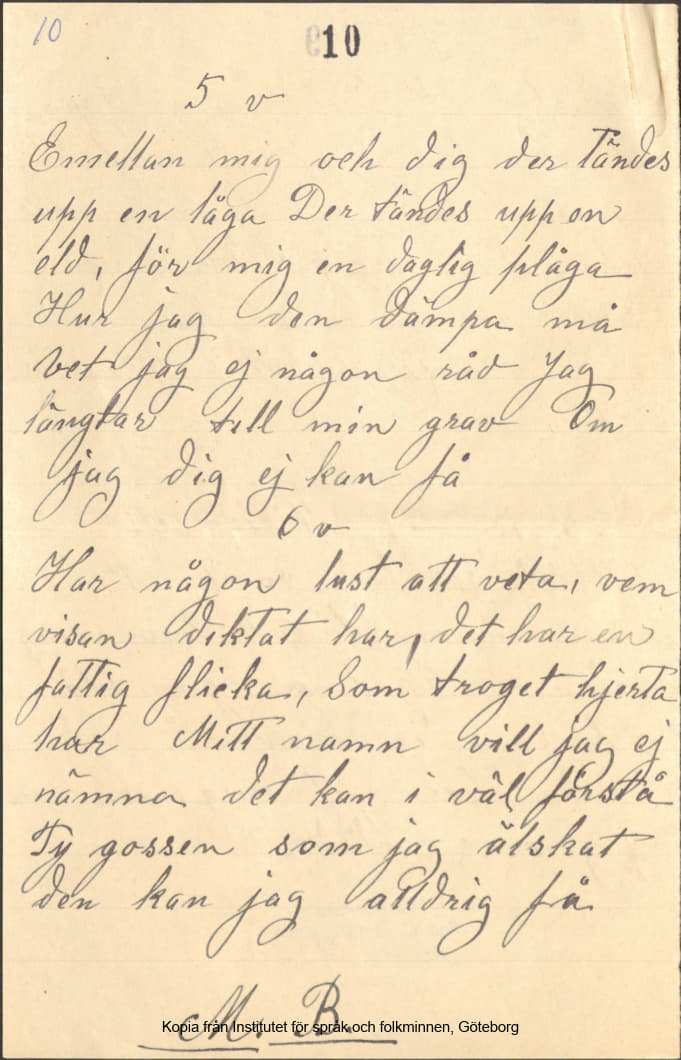 10
10
5 v
Emellan mig och dig der tändes
upp en låga Der tändes upp en
eld, för mig en daglig plåga
Hur jag den dämpa må
Vet jag ej någon råd Jag
längtar till min grav Om
jag dig ej kan få
6 v
Har någon lust att veta, vem
visan diktat har, det har en
fattig flicka, Som troget hjerta
har Mitt namn vill jag ej
nämna det kan i väl förstå
Ty gossen som jag älskat
den kan jag alldrig få
M. B.
Kopia från Institutet för språk och folkminnen, Göteborg